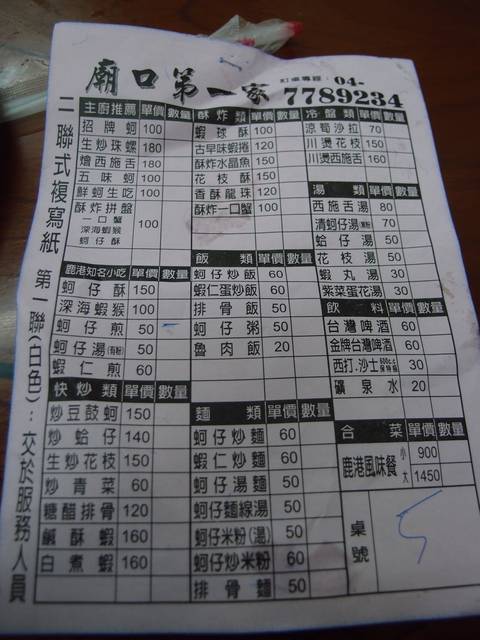 廟口第一家
訂桌專線：04-
7789234
二聯式複寫紙 第一聯(白色)：交於服務人員
主廚推薦 單價 數量
招牌蚵 100
生炒珠螺 180
燴西施舌 180
五味蚵 100
鮮蚵生吃 100
酥炸拼盤 100
一口蟹
深海蝦猴
蚵仔酥
鹿港知名小吃 單價 數量
蚵仔酥 150
深海蝦猴 100
蚵仔煎 50
蚵仔湯(有粉) 50
蝦仁煎 60
快炒類 單價 數量
炒豆鼓蚵 150
炒蛤仔 140
生炒花枝 150
炒青菜 60
糖醋排骨 120
鹹酥蝦 160
白煮蝦 160
酥炸類 單價 數量
蝦球酥 100
古早味蝦捲 120
酥炸水晶魚 150
花枝酥 150
香酥龍珠 120
酥炸一口蟹 100
飯類 單價 數量
蚵仔炒飯 60
蝦仁蛋炒飯 60
排骨飯 50
蚵仔粥 50
魯肉飯 20
麵類 單價 數量
蚵仔炒麵 60
蝦仁炒麵 60
蚵仔湯麵 50
蚵仔麵線湯 50
蚵仔米粉(湯) 50
蚵仔炒米粉 60
排骨麵 50
冷盤類 單價 數量
涼筍沙拉 70
川燙花枝 150
川燙西施舌 160
湯類 單價 數量
西施舌湯 80
清蚵仔湯 70
蛤仔湯 50
花枝湯 50
蝦丸湯 30
紫菜蛋花湯 30
飲料 單價 數量
台灣啤酒 60
金牌台灣啤酒 60
西打.沙士 600c.c 保特瓶 30
礦泉水 20
合菜 單價 數量
鹿港風味餐 小 900
大 1450
桌號 5